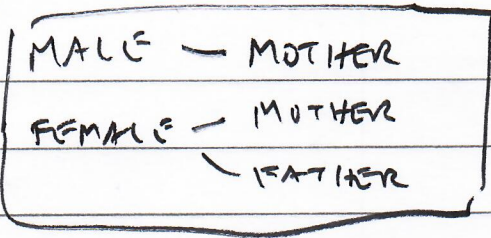 MALE — MOTHER
FEMALE — MOTHER
FATHER